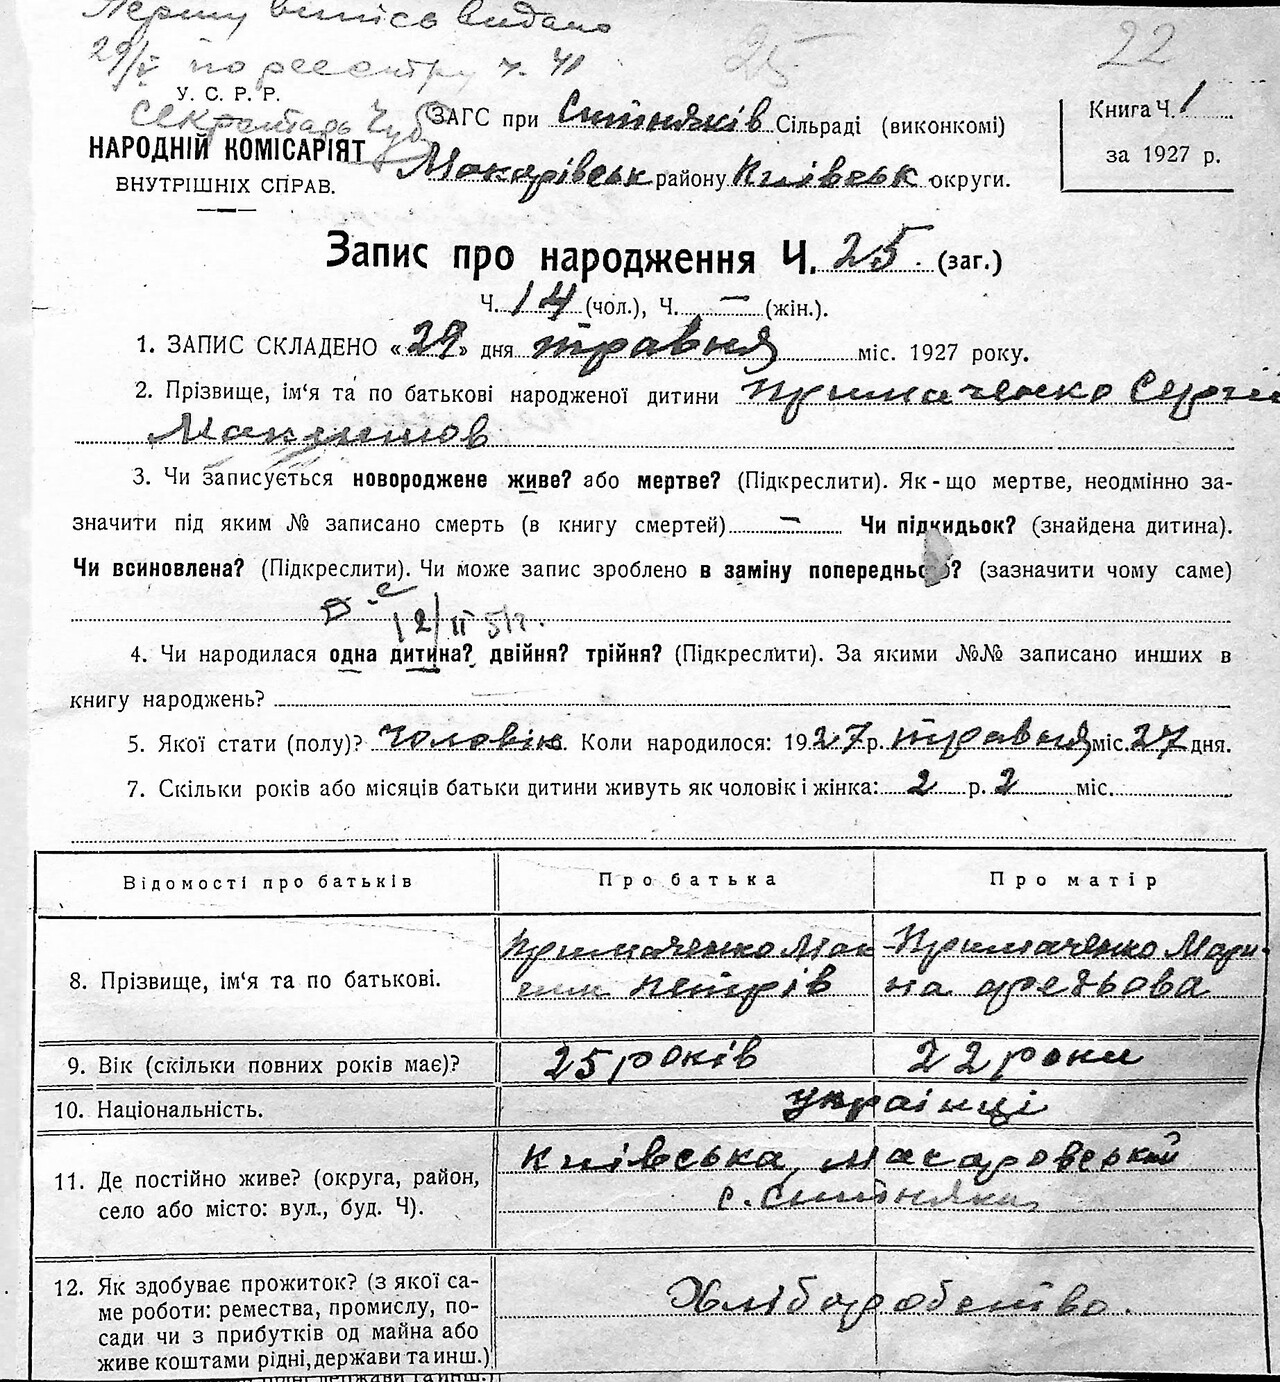 Першу випись видано
29/V по реєстру ч. 41
Секретарь Чуб
25
22
У. С. Р. Р.
НАРОДНІЙ КОМІСАРІЯТ
ВНУТРІШНІХ СПРАВ.
ЗАГС при Ситняків Сільраді (виконкомі)
Макарівськ району Київськ округи.
Книга Ч. 1
за 1927 р.
Запис про народження Ч. 25. (заг.)
Ч. 14 (чол.), Ч. — (жін.).
1. ЗАПИС СКЛАДЕНО «29» дня травня міс. 1927 року.
2. Прізвище, ім‘я та по батькові народженої дитини Примаченко Сергій
Максимов
3. Чи записується новороджене живе? або мертве? (Підкреслити). Як-що мертве, неодмінно за-
значити під яким № записано смерть (в книгу смертей) — Чи підкидьок? (знайдена дитина).
Чи всиновлена? (Підкреслити). Чи може запис зроблено в заміну попереднього? (зазначити чому саме)
4. Чи народилася одна дитина? двійня? трійня? (Підкреслити). За якими №№ записано инших в
книгу народжень?
5. Якої стати (полу)? Чоловік. Коли народилося: 1927 р. травня міс. 27 дня.
7. Скільки років або місяців батьки дитини живуть як чоловік і жінка: 2 р. 2 міс.
Відомості про батьків Про батька Про матір
8. Прізвище, ім‘я та по батькові.
Примаченко Мак
сим Петрів
Примаченко Мари-
на Арефьова
9. Вік (скільки повних років має)? 25 років 22 роки
10. Національність. українці
11. Де постійно живе? (округа, район,
село або місто: вул., буд. Ч).
Київська, Макаровський
с. Ситняки
12. Як здобуває прожиток? (з якої са-
ме роботи: ремества, промислу, по-
сади чи з прибутків од майна або
живе коштами рідні, держави та инш.)
Хліборобство.